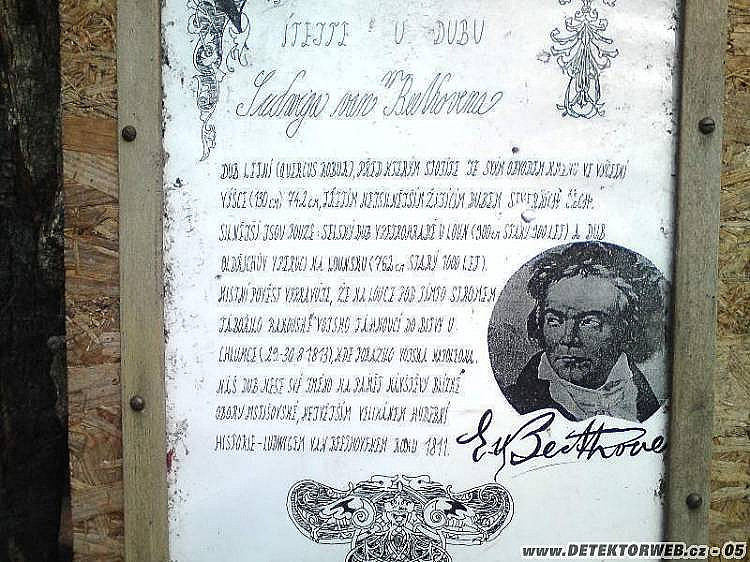 JTEJTE U DUBU
Ludwiga van Beethovena
DUB LETNÍ (QUERCUS ROBUR), PŘED KTERÝM STOJÍTE JE SVÝM OBVODEM KMENE VE VÝČETNÍ
VÝŠCE (130 cm) 742 cm, TŘETÍM NEJSILNĚJŠÍM ŽIJÍCÍM DUBEM SEVERNÍCH ČECH.
SILNĚJŠÍ JSOU POUZE: SELSKÝ DUB V PETROHRADĚ U LOUN (900 cm STARÝ 900 LET) A DUB
OLDŘICHŮV V PERUCI NA LOUNSKU (762 cm STARÝ 1000 LET).
MÍSTNÍ POVĚST VYPRAVUJE, ŽE NA LOUCE POD TÍMTO STROMEM
TÁBOŘILO RAKOUSKÉ VOJSKO TÁHNOUCÍ DO BITVY U
CHLUMCE (29.-30.8.1813), KDE PORAZILO VOJSKA NAPOLEONA.
NÁŠ DUB NESE SVÉ JMÉNO NA PAMĚŤ NÁVŠTĚVY BLÍZKÉ
OBORY MSTIŠOVSKÉ, NEJVĚTŠÍM VELIKÁNEM HUDEBNÍ
HISTORIE - LUDWIGEM VAN BEETHOVENEM ROKU 1811.
Beethove
www.DETEKTORWEB.cz - 05